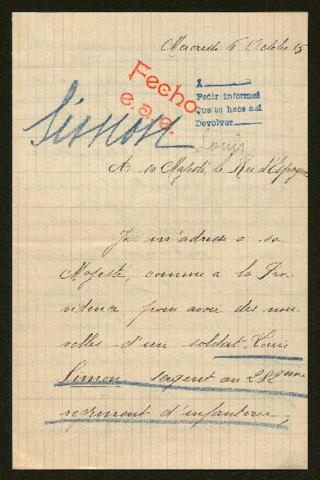 Mercredi 6 Octobre 15
Fecho
e.a.e.
1
Pedir informes
Que se hace así
Devolver
Simon
Louis
A sa Majesté le Roi d'Espagne
Je m'adresse a sa
Majesté, comme a la Pro-
vidence pour avoir des nou-
velles d'un soldat, Louis
Simon sergent au 282eme
regiment d'infanterie,